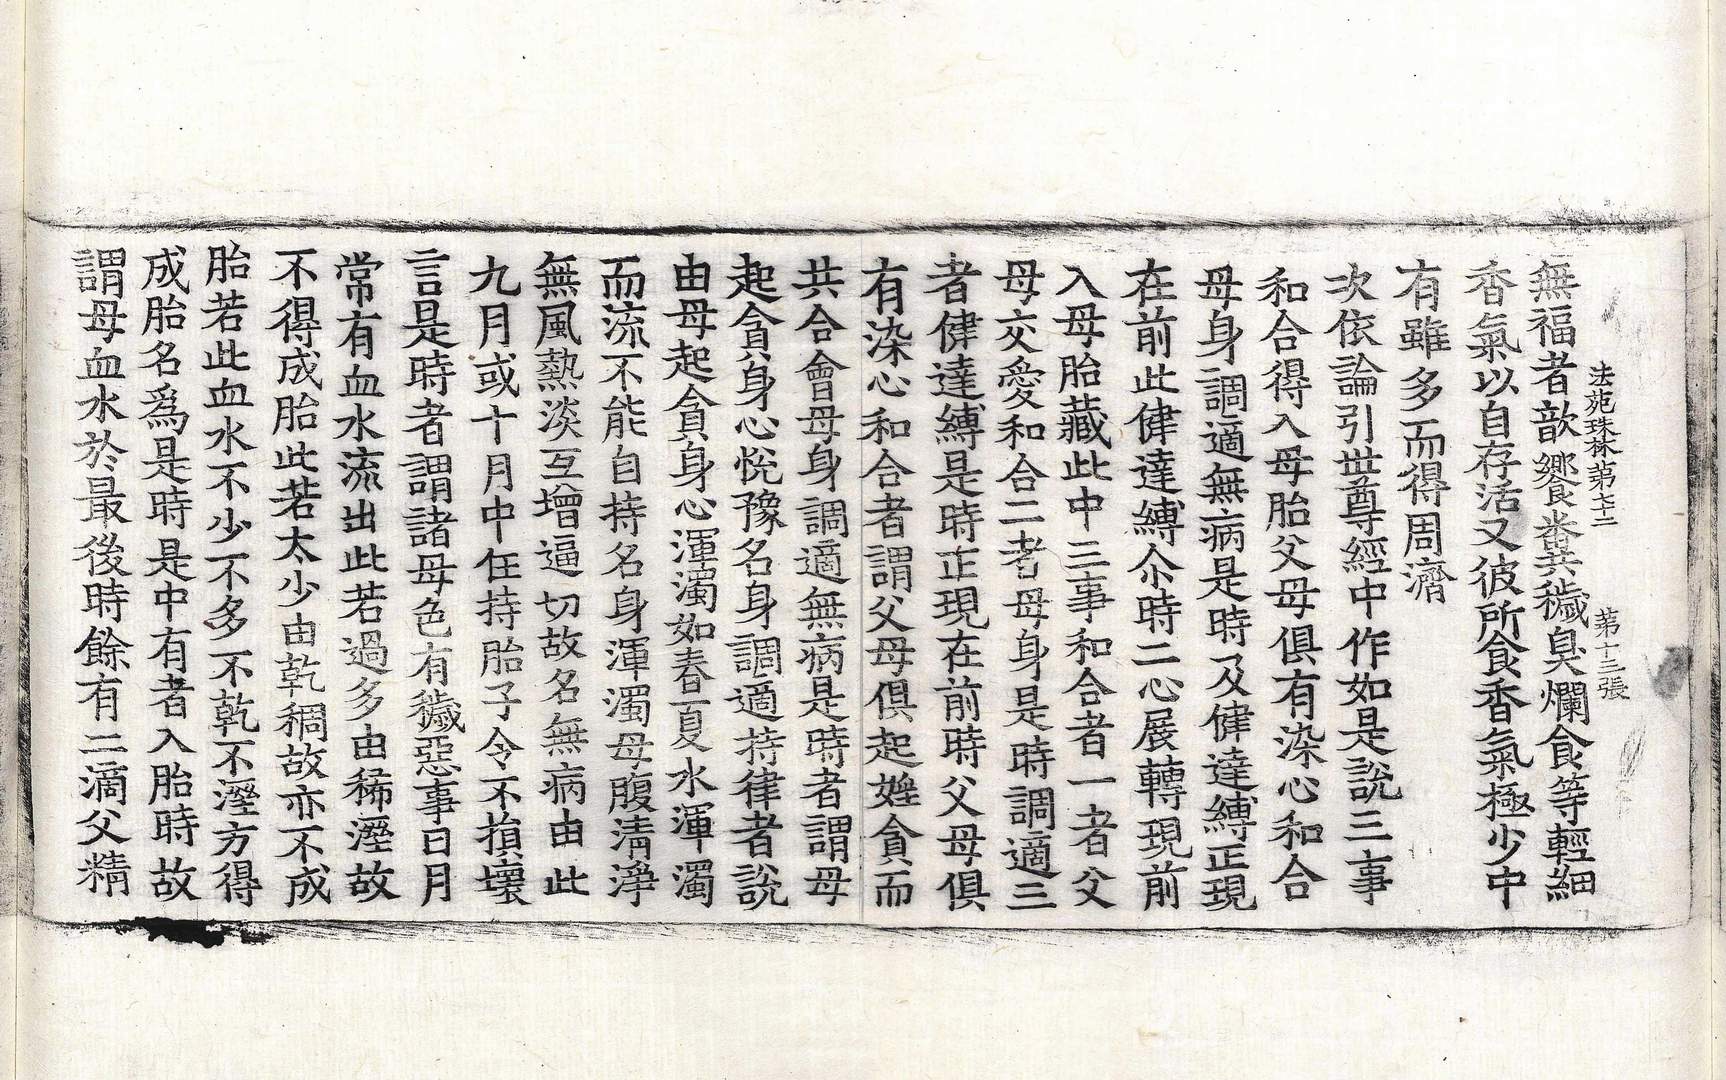 法苑珠林第七十二　第十三張
無福者歆饗糞穢臭爛食等輕細
香氣以自存活又彼所食香氣極少中
有雖多而得周濟
次依論引世尊經中作如是說三事
和合得入母胎父母俱有染心和合
母身調適無病是時及健達縛正現
在前此健達縛尒時二心展轉現前
入母胎藏此中三事和合者一者父
母交愛和合二者母身是時調適三
者健達縛是時正現在前時父母俱
有染心和合者謂父母俱起婬貪而
共合會母身調適無病是時者謂母
起貪身心悅豫名身調適持律者說
由母起貪身心渾濁如春夏水渾濁
而流不能自持名身渾濁母腹清淨
無風熱淡互增逼切故名無病由此
九月或十月中任持胎子令不損壞
言是時者謂諸母色有穢惡事日月
常有血水流出此若過多由稀溼故
不得成胎此若太少由乾稠故亦不成
胎若此血水不少不多不乾不溼方得
成胎名爲是時是中有者入胎時故
謂母血水於最後時餘有二滴父精